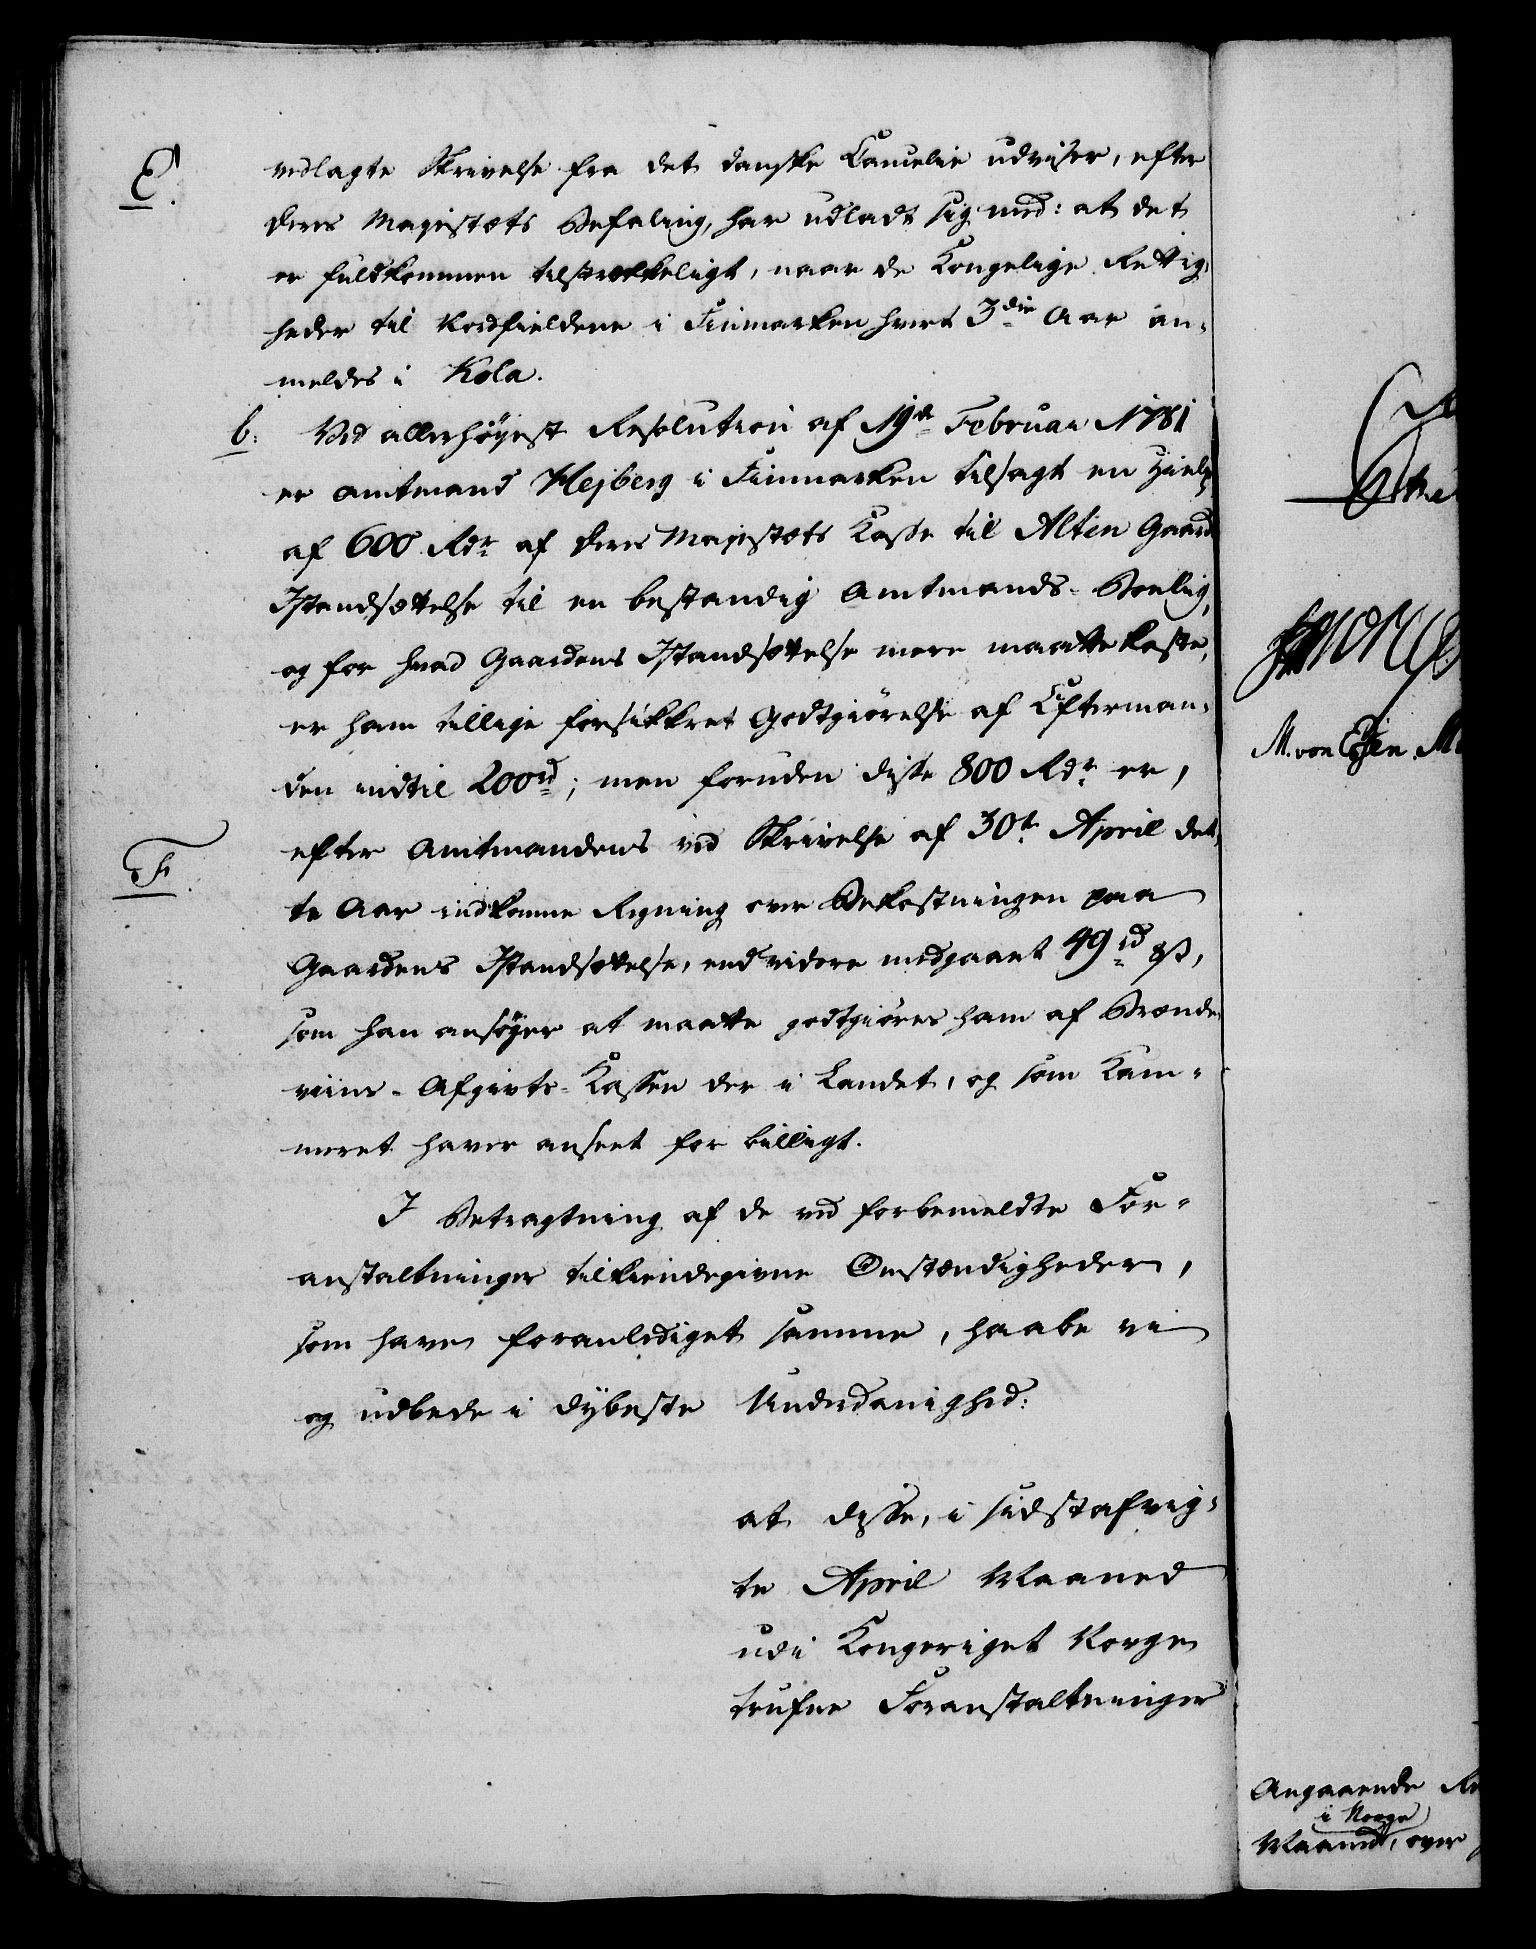 E.
vedlagte Skrivelse fra det danske Cancelie udviser, efter
Deres Majestæts Befaling, har udladt sig med: at det
er fuldkommen tilstrækkeligt, naar de Kongelige Rettig-
heder til Nordfieldene i Finmarken hvert 3die Aar an-
meldes i Kola.
6. Ved allerhøyest Resolution af 19de Februar 1781
er Amtmand Hejberg i Finmarken tilsagt en Hielp
af 600 Rdr af Deres Majestæts Kasse til Alten Gaards
Istandsættelse til en bestandig Amtmands-Boelig,
og for hvad Gaardens Istandsættelse mere maatte koste,
er ham tillige forsikkret Godtgiørelse af Efterman-
den indtil 200rd; men foruden disse 800 Rdr er,
F.
efter Amtmandens ved Skrivelse af 30te April det-
te Aar indkomne Regning over Bekostningen paa
Gaardens Istandsættelse, end videre medgaaet 49rd 8ß,
som han ansøger at maatte godtgiøres ham af Brænde-
viins-Afgivts-Kassen der i Landet, og som Kam-
meret haver anseet for billigt.
I Betragtning af de ved forbemeldte For-
anstaltninger tilkiendegivne Omstændigheder,
som haver foranlediget samme, haabe vi
og udbede i dybeste Underdanighed:
at disse, i sidstafvig-
te April Maaned
udi Kongeriget Norge
trufne Foranstaltninger
M. von Essen. M
Angaaende
i Norge
Maaned, over